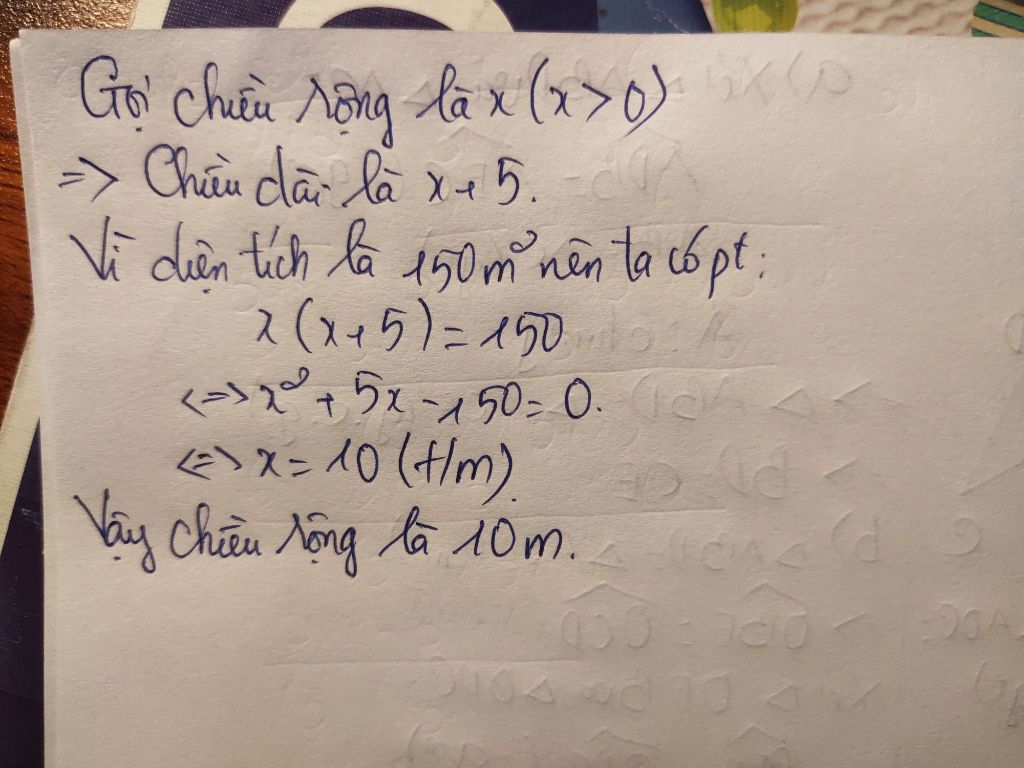 Gọi chiều rộng là x (x > 0)
=> Chiều dài là x + 5.
Vì diện tích là 150m² nên ta có pt:
x (x + 5) = 150
<=> x² + 5x - 150 = 0.
<=> x = 10 (t/m).
Vậy chiều rộng là 10m.